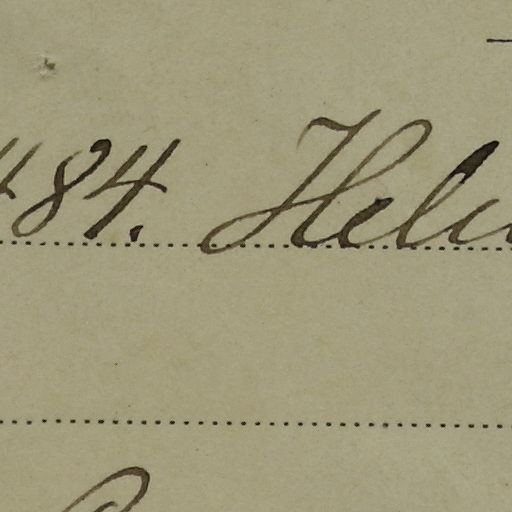 484. Hel